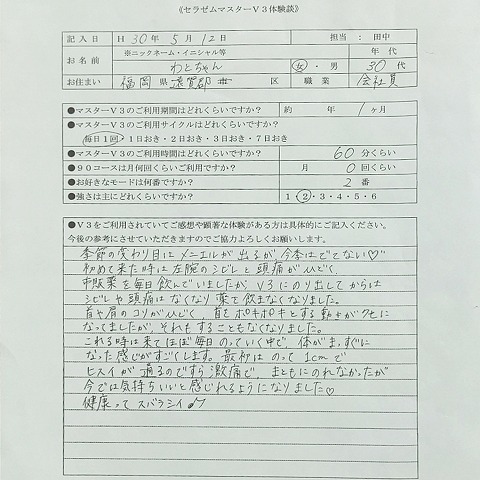 《セラゼムマスターV3体験談》
記入日 H 30年 5月 12日 担当：田中
お名前 ※ニックネーム・イニシャル等 わとちゃん 女・男 年代 30代
お住まい 福岡 県 遠賀郡 区 職業 会社員
●マスターV3のご利用期間はどれくらいですか？ 約 年 1ヶ月
●マスターV3のご利用サイクルはどれくらいですか？
毎日1回・1日おき・2日おき・3日おき・7日おき
●マスターV3のご利用時間はどれくらいですか？ 60分くらい
●90コースは月何回くらいご利用ですか？ 月 0回くらい
●お好きなモードは何番ですか？ 2番
●強さは主にどれくらいですか？ 1・2・3・4・5・6
●V3をご利用されていてご感想や顕著な体験がある方は具体的にご記入ください。
今後の参考にさせていただきますのでご協力よろしくお願いします。
季節の変わり目にメニエルが出るが、今季はでてない♡
初めて来た時は左腕のシビレと頭痛がひどく、
市販薬を毎日飲んでいましたが、V3にのり出してからは
シビレや頭痛はなくなり薬を飲まなくなりました。
首や肩のコリがひどく、首をポキポキとする動きがクセに
なってましたが、それもすることもなくなりました。
これる時は来てほぼ毎日のっていく中で、体がまっすぐに
なった感じがすごくします。最初はのって1cmで
ヒスイが通るのですら激痛で、まともにのれなかったが
今では気持ちいいと感じれるようになりました♡
健康ってスバラシイ♪